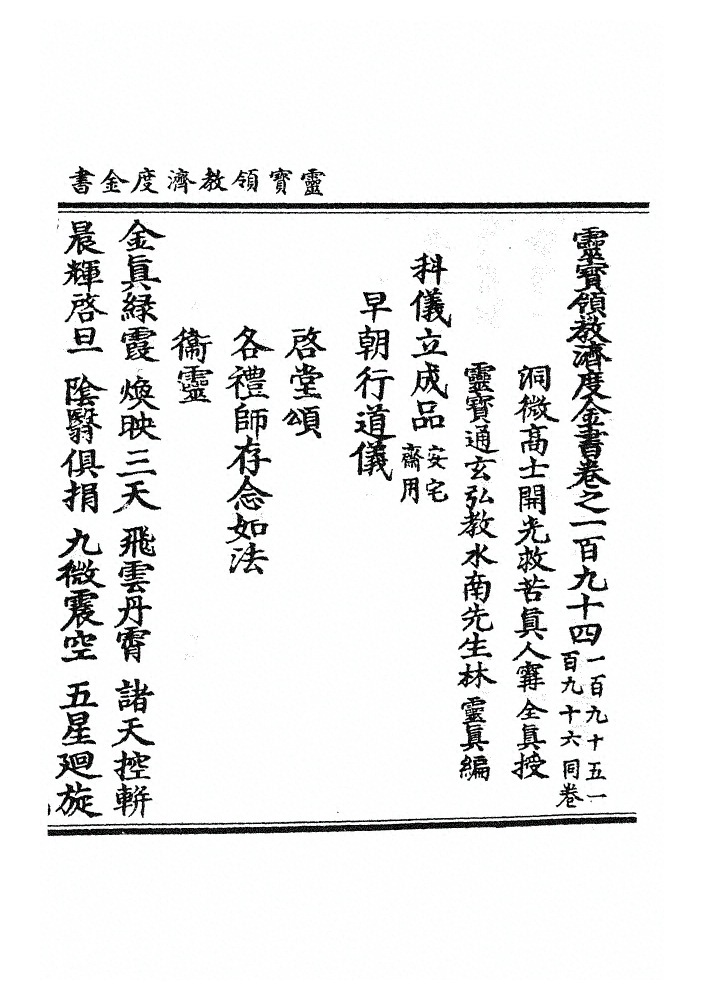 靈寶領教濟度金書
靈寶領教濟度金書卷之一百九十四一百九十五一百九十六同卷
洞微高士開光救苦眞人寗全眞授
靈寶通玄弘教水南先生林靈眞編
科儀立成品安宅齋用
早朝行道儀
啓堂頌
各禮師存念如法
衞靈
金眞緑霞 煥映三天 飛雲丹霄 諸天控軿
晨輝啓旦 陰翳俱捐 九微震空 五星廻旋